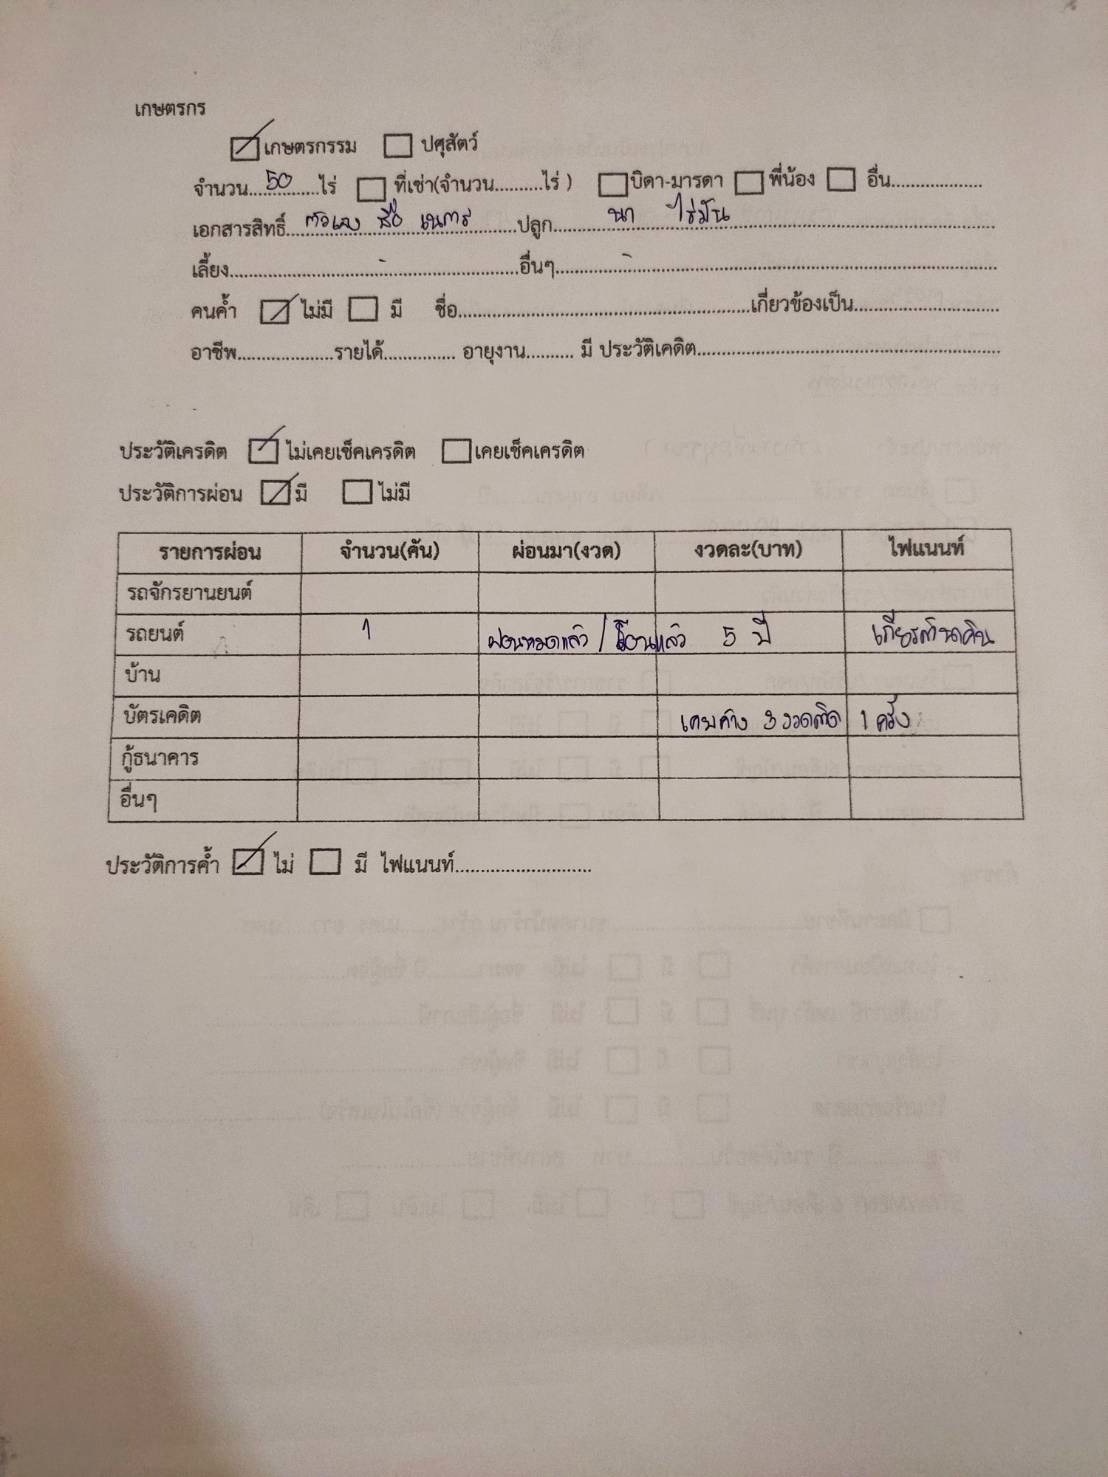 เกษตรกร
เกษตรกรรม ปศุสัตว์
จำนวน....50....ไร่ ที่เช่า(จำนวน..........ไร่ ) บิดา-มารดา พี่น้อง อื่น...................
เอกสารสิทธิ์....ตัวเอง ชื่อ....ปลูก....นา ไร่มัน....
เลี้ยง....-....อื่นๆ....-....
คนค้ำ ไม่มี มี ชื่อ....เกี่ยวข้องเป็น....
อาชีพ....................รายได้............... อายุงาน.......... มี ประวัติเคดิต....
ประวัติเครดิต ไม่เคยเช็คเครดิต เคยเช็คเครดิต
ประวัติการผ่อน มี ไม่มี
รายการผ่อน จำนวน(คัน) ผ่อนมา(งวด) งวดละ(บาท) ไฟแนนท์
รถจักรยานยนต์
รถยนต์ 1 ผ่อนหมดแล้ว / โอนแล้ว 5 ปี เกียรตินาคิน
บ้าน
บัตรเคดิต เคยค้าง 3 งวดติด 1 ครั้ง
กู้ธนาคาร
อื่นๆ
ประวัติการค้ำ ไม่ มี ไฟแนนท์..........................